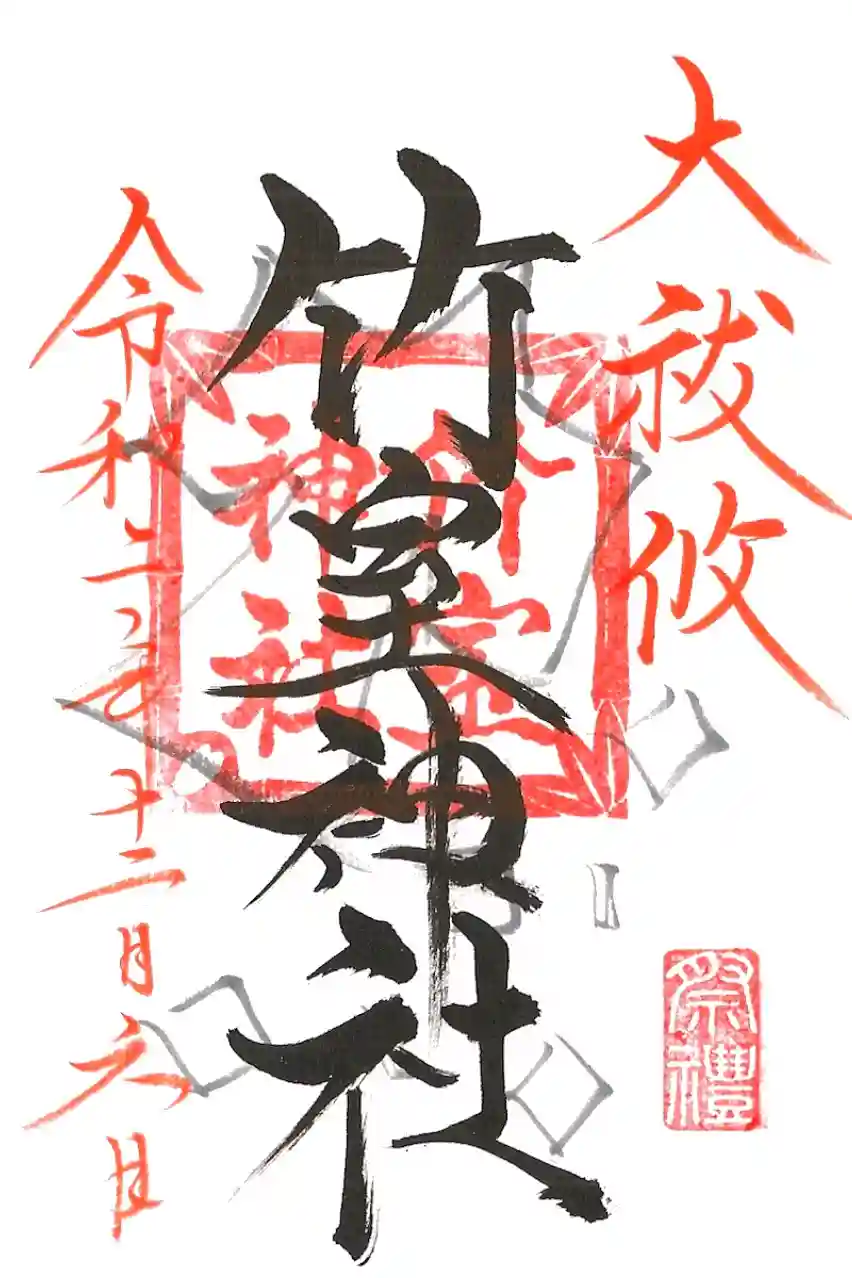 大祓攸
祭禮
竹室神社
竹室
神社
令和二年十二月六日